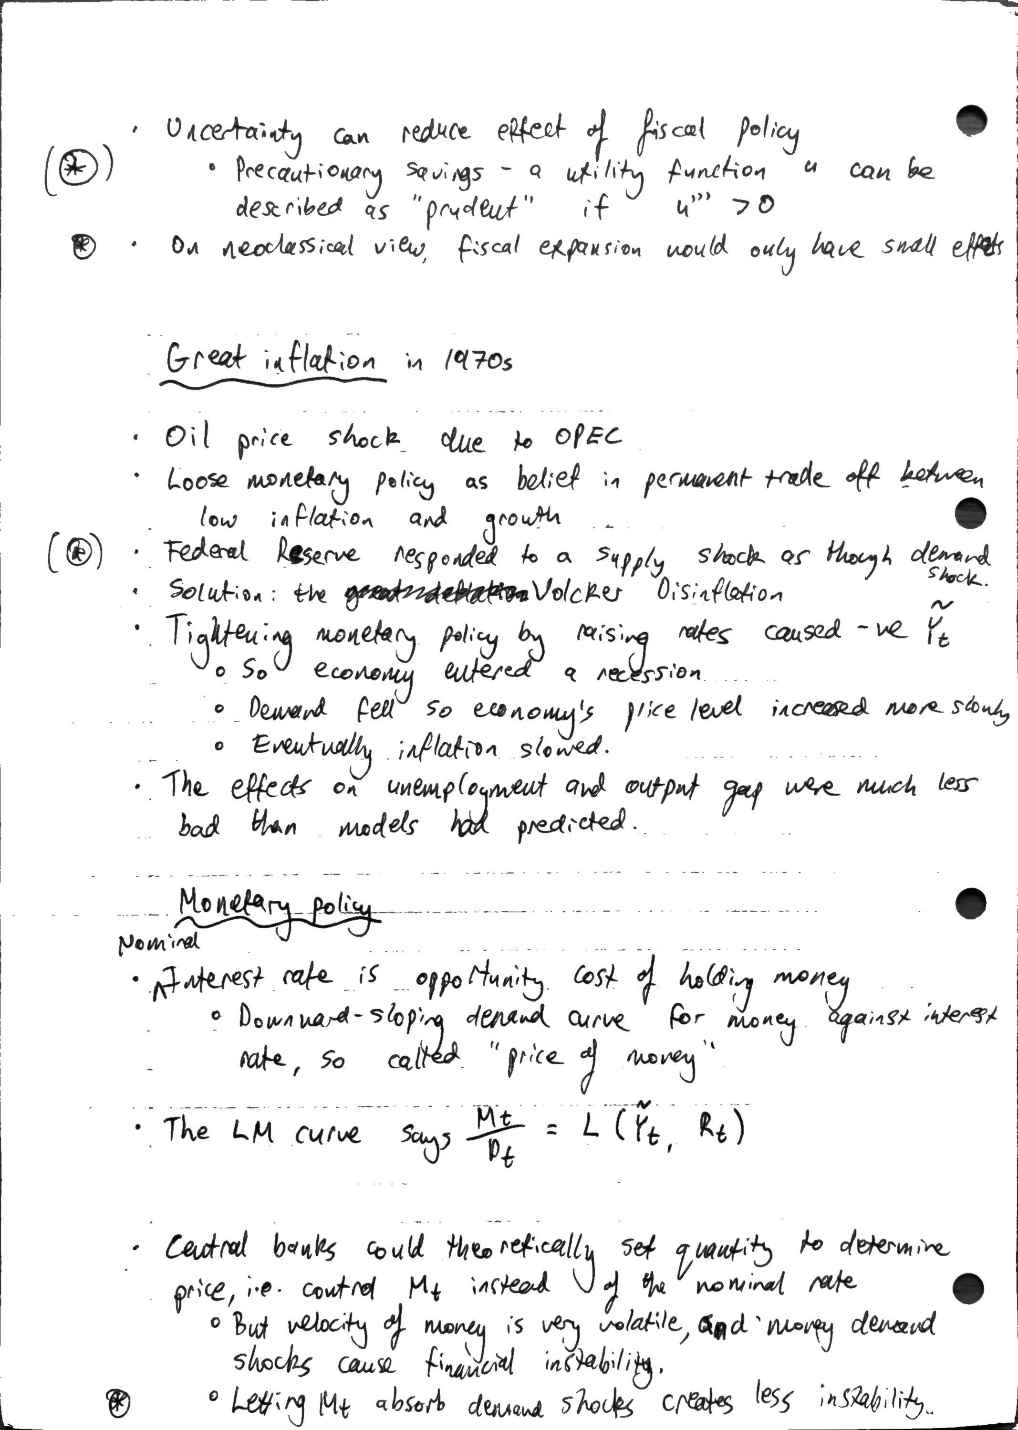 · Uncertainty can reduce effect of fiscal policy
(⊛) ∘ Precautionary savings – a utility function u can be
described as "prudent" if u''' > 0
⊛ · On neoclassical view, fiscal expansion would only have small effects
Great inflation in 1970s
· Oil price shock due to OPEC
· Loose monetary policy as belief in permanent trade off between
low inflation and growth
(⊛) · Federal Reserve responded to a supply shock as though demand
shock.
· Solution: the Volcker Disinflation
· Tightening monetary policy by raising rates caused -ve Ỹt
∘ So economy entered a recession
∘ Demand fell so economy's price level increased more slowly
∘ Eventually inflation slowed.
· The effects on unemployment and output gap were much less
bad than models had predicted.
Monetary policy
Nominal
· Interest rate is opportunity cost of holding money
∘ Downward-sloping demand curve for money against interest
rate, so called "price of money"
· The LM curve says Mt/Pt = L(Ỹt, Rt)
· Central banks could theoretically set quantity to determine
price, i.e. control Mt instead of the nominal rate
∘ But velocity of money is very volatile, and money demand
shocks cause financial instability.
⊛ ∘ Letting Mt absorb demand shocks creates less instability.